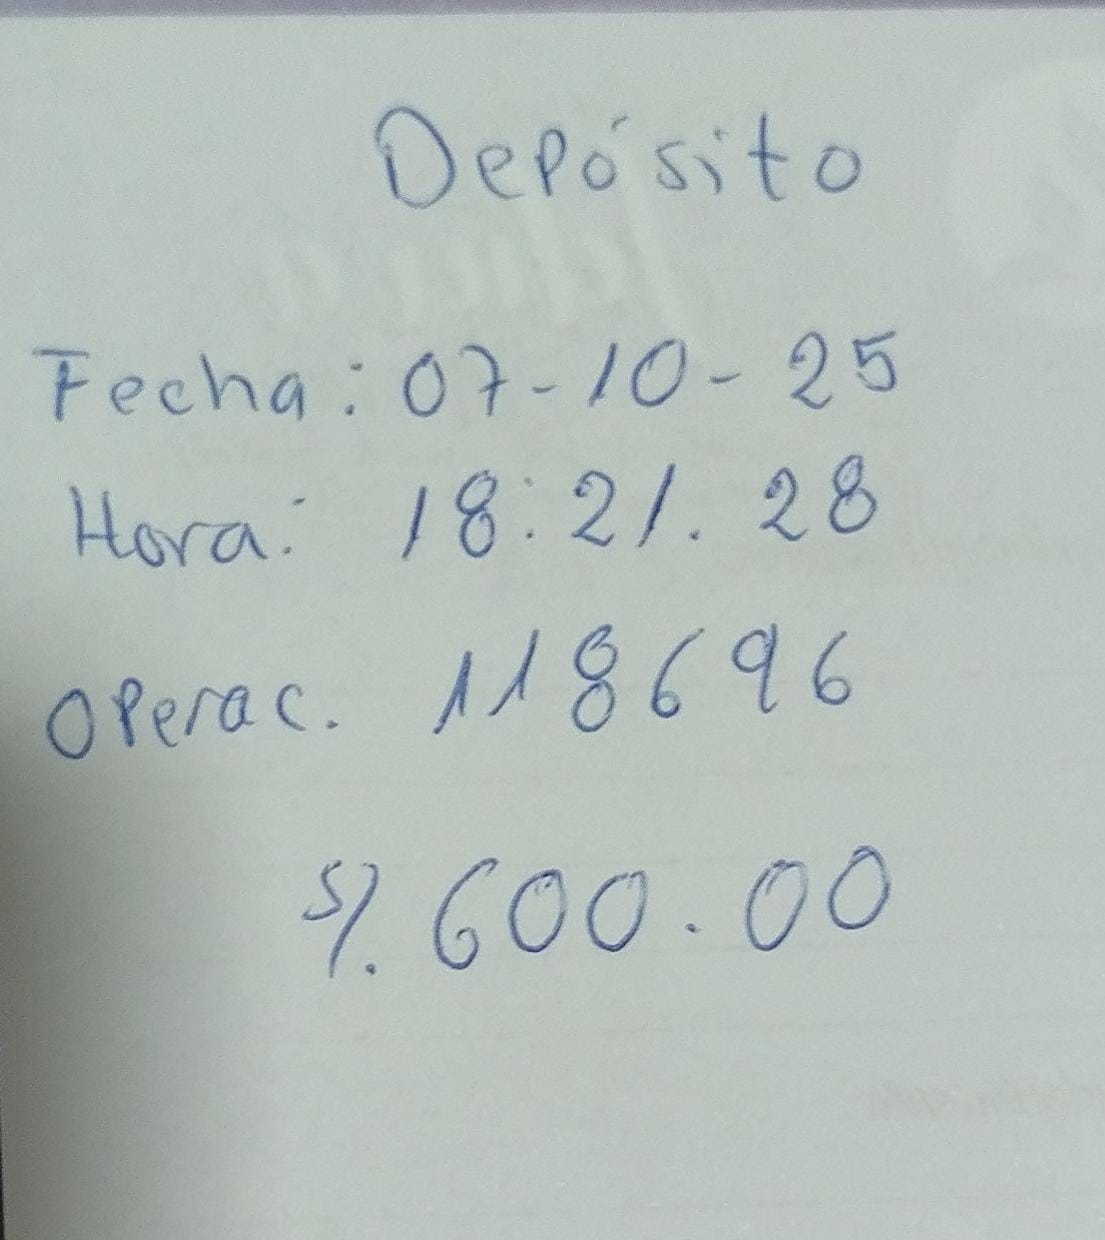 Depósito
Fecha: 07-10-25
Hora: 18:21.28
Operac. 118696
S/. 600.00